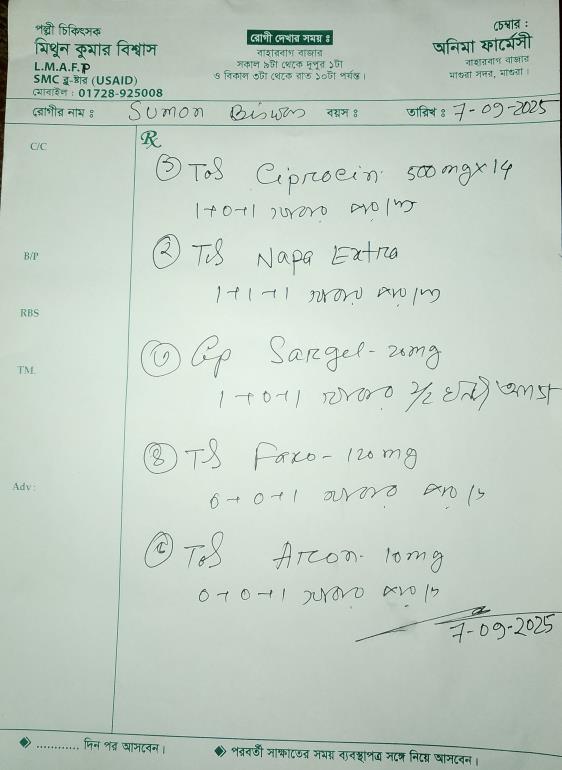 পল্লী চিকিৎসক
মিথুন কুমার বিশ্বাস
L.M.A.F.P
SMC ব্লু-ষ্টার (USAID)
মোবাইল : 01728-925008
রোগী দেখার সময় ঃ
বাহারবাগ বাজার
সকাল ৯টা থেকে দুপুর ১টা
ও বিকাল ৩টা থেকে রাত ১০টা পর্যন্ত।
চেম্বার :
অনিমা ফার্মেসী
বাহারবাগ বাজার
মাগুরা সদর, মাগুরা।
রোগীর নাম ঃ Sumon Biswas বয়স ঃ তারিখ ঃ 7-09-2025
C/C
Rx
Ciprocin 500mg x 14
1+0+1
B/P
২ Napa Extra
1+1+1
RBS
TM.
৩ Cap Sargel-20mg
1+0+1
৪ Faxo-120mg
0+0+1
Adv:
৫ Arcon-10mg
0+0+1
7-09-2025
............ দিন পর আসবেন।
পরবর্তী সাক্ষাতের সময় ব্যবস্থাপত্র সঙ্গে নিয়ে আসবেন।